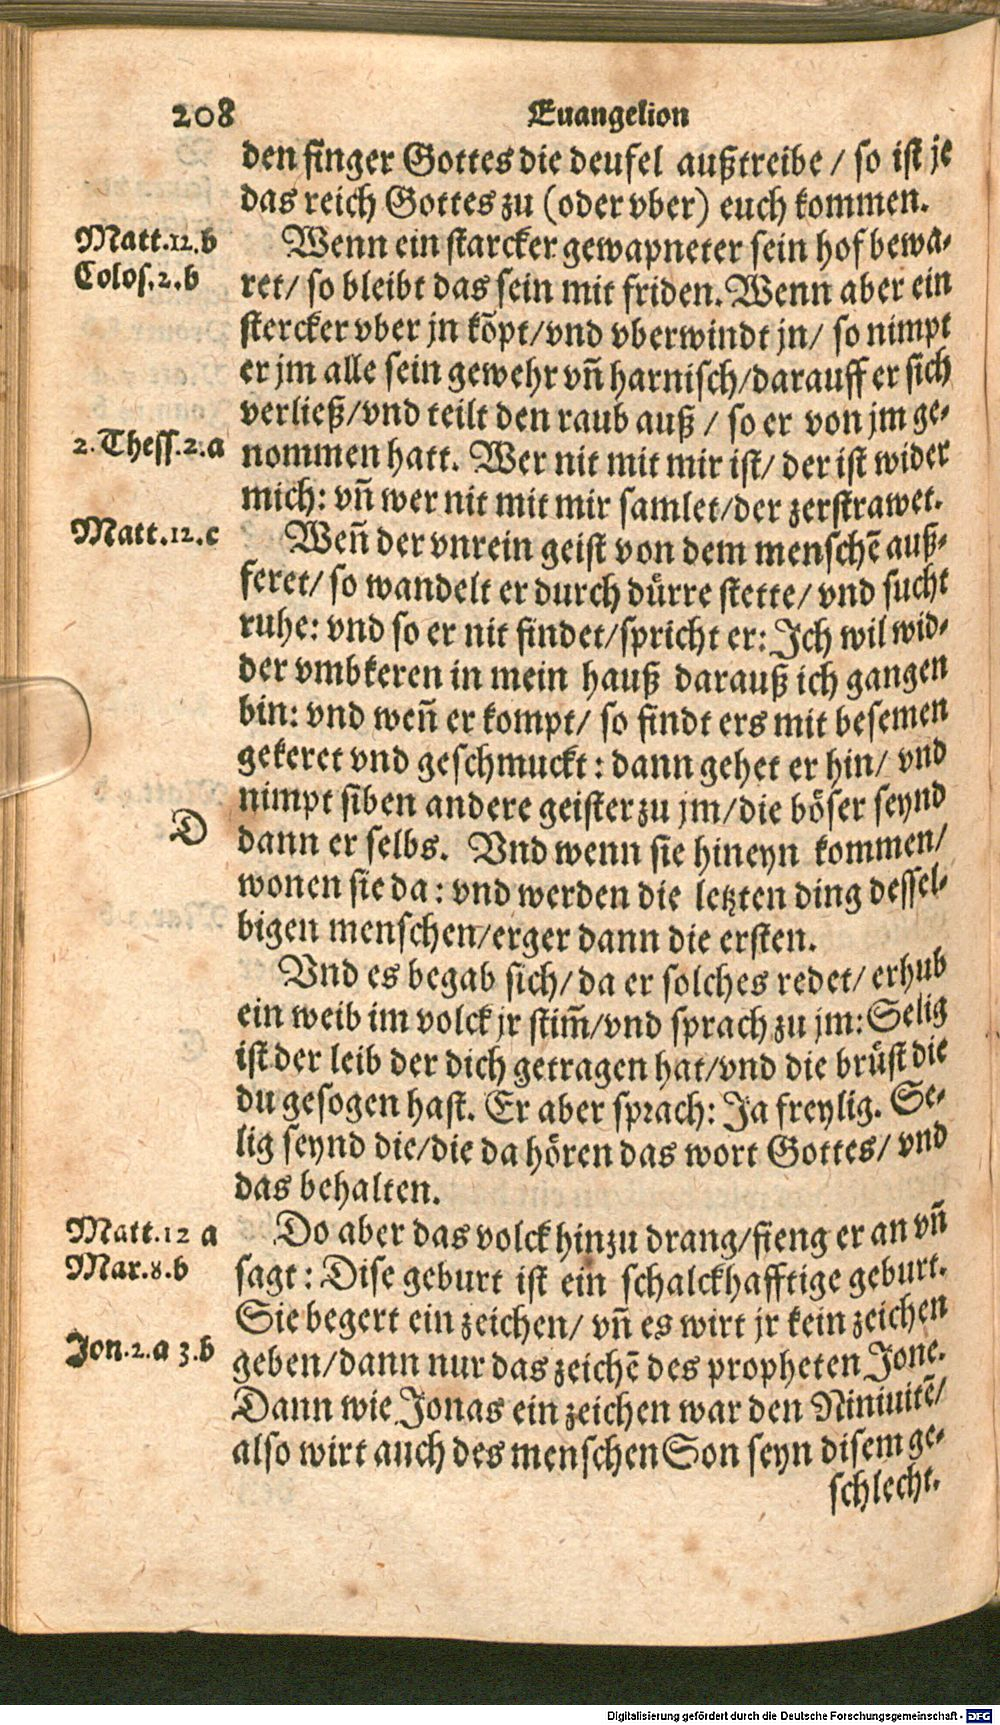 208 Euangelion
den finger Gottes die deufel außtreibe / so ist je
das reich Gottes zu (oder vber) euch kommen.
Matt.12.b
Wenn ein starcker gewapneter sein hof bewa-
Colos.2.b
ret/ so bleibt das sein mit friden. Wenn aber ein
stercker vber jn kõpt/vnd vberwindt jn/ so nimpt
er jm alle sein gewehr vñ harnisch/darauff er sich
verließ/vnd teilt den raub auß / so er von jm ge-
2. Thess.2.a
nommen hatt. Wer nit mit mir ist/ der ist wider
mich: vñ wer nit mit mir samlet/der zerstrawet.
Matt.12.c
Weñ der vnrein geist von dem menschẽ auß-
feret/ so wandelt er durch dürre stette/ vnd sucht
ruhe: vnd so er nit findet/spricht er: Ich wil wid-
der vmbkeren in mein hauß darauß ich gangen
bin: vnd weñ er kompt/ so findt ers mit besemen
gekeret vnd geschmuckt: dann gehet er hin/ vnd
nimpt siben andere geister zu jm/die böser seynd
D
dann er selbs. Vnd wenn sie hineyn kommen/
wonen sie da: vnd werden die letzten ding dessel-
bigen menschen/erger dann die ersten.
Vnd es begab sich/ da er solches redet/ erhub
ein weib im volck jr stim̃/vnd sprach zu jm: Selig
ist der leib der dich getragen hat/vnd die brüst die
du gesogen hast. Er aber sprach: Ja freylig. Se-
lig seynd die/die da hören das wort Gottes/ vnd
das behalten.
Matt.12 a
Do aber das volck hinzu drang/fieng er an vñ
Mar.8.b
sagt: Dise geburt ist ein schalckhafftige geburt.
Sie begert ein zeichen/ vñ es wirt jr kein zeichen
Jon.2.a 3.b
geben/dann nur das zeichẽ des propheten Jone.
Dann wie Jonas ein zeichen war den Niniuitẽ/
also wirt auch des menschen Son seyn disem ge-
schlecht.
Digitalisierung gefördert durch die Deutsche Forschungsgemeinschaft - DFG